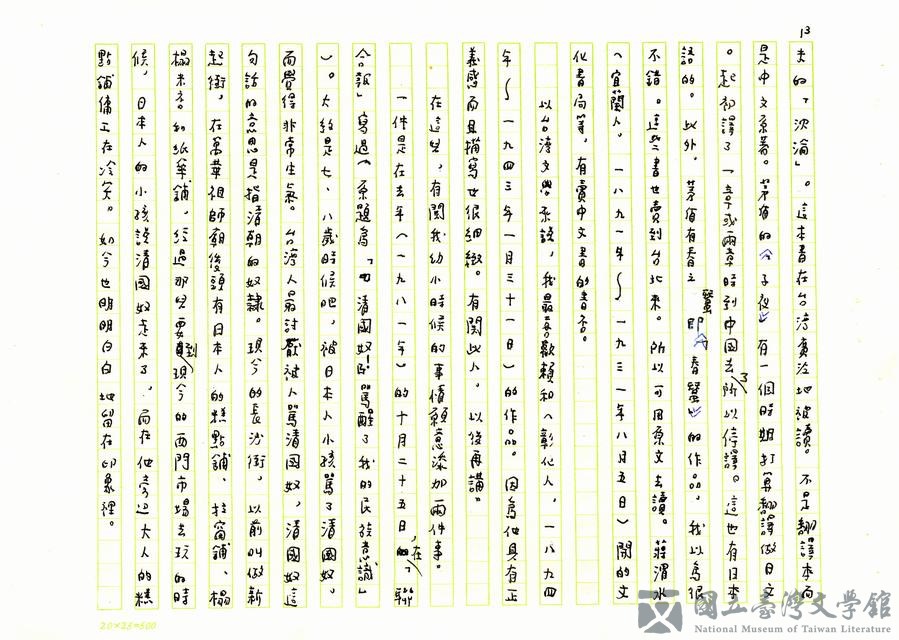 13
夫的「沈淪」。這本書在台湾廣泛地被讀。不是翻譯本而
是中文原著。茅盾的《子夜》有一個時期打算翻譯做日文
。起初譯了一章或兩章時到中国去了所以停譯。這也有日本
語的。此外，茅盾有春蚕即《春蚕》的作品，我以為很
不錯。這些書也賣到台北來。所以可用原文去讀。蔣渭水
（宜蘭人。一八九一年～一九三一年八月五日）開的文
化書局等，有賣中文書的書店。
以台湾文學來說，我最喜歡賴和（彰化人，一八九四
年～一九四三年一月三十一日）的作品。因為他具有正
義感而且描寫也很細緻。有関此人，以後再講。
在這兒，有関我幼小時候的事情願意添加兩件事。
一件是在去年（一九八一年）的十月二十五日，在「聯
合報」寫過（原題為「『清國奴！』罵醒了我的民族意識」
）。大約是七、八歲時候吧，被日本人小孩罵了清國奴。
而覺得非常生氣。台湾人最討厭被人罵清國奴，清國奴這
句話的意思是指清朝的奴隸。現今的長沙街，以前叫做新
起街，在萬華祖師廟後頭有日本人的糕點舖、拉窗舖、榻
榻米店和紙傘舖，經過那兒要到現今的西門市場去玩的時
候，日本人的小孩説清國奴走來了，而在他旁边大人的糕
點舖傭工在冷笑。如今也明明白白地留在印象裡。
20×25=500
國立臺灣文學館
National Museum of Taiwan Literature